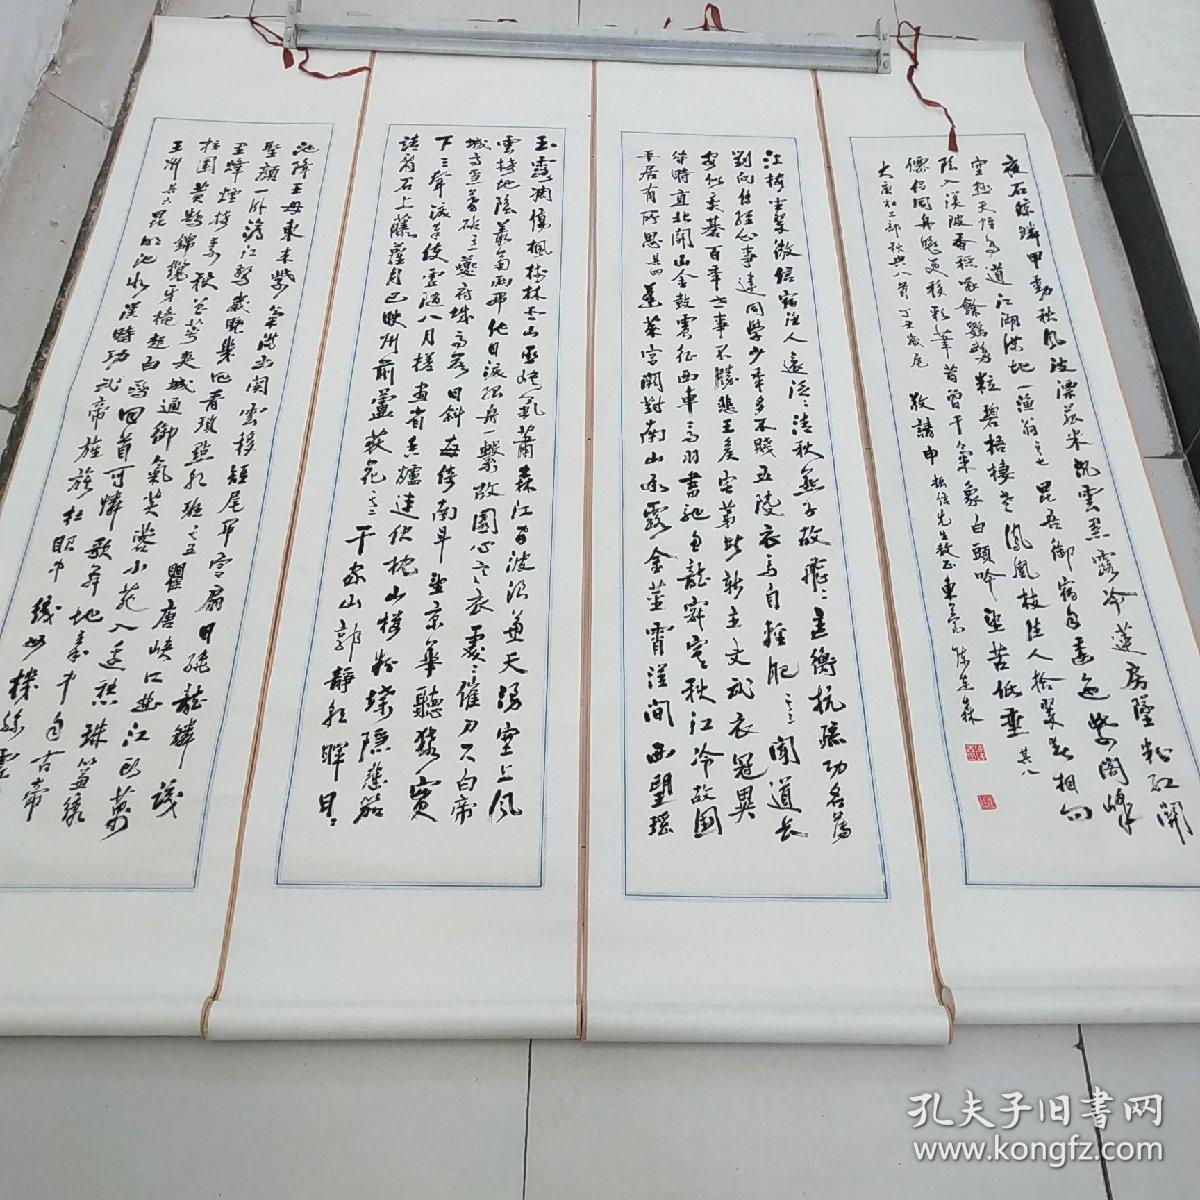 玉露凋傷楓樹林巫山巫峽氣蕭森江間波浪兼天湧塞上風
雲接地陰叢菊兩開他日淚孤舟一繫故園心寒衣處處催刀尺白帝
城高急暮砧其一夔府孤城落日斜每依南斗望京華聽猿實
下三聲淚奉使虛隨八月槎畫省香爐違伏枕山樓粉堞隱悲笳
請看石上藤蘿月已映洲前蘆荻花其二千家山郭靜朝暉日日
江樓坐翠微信宿漁人還泛泛清秋燕子故飛飛匡衡抗疏功名薄
劉向傳經心事違同學少年多不賤五陵衣馬自輕肥其三聞道長
安似奕棊百年世事不勝悲王侯宅第皆新主文武衣冠異
昔時直北關山金鼓震征西車馬羽書馳魚龍寂寞秋江冷故國
平居有所思其四蓬萊宮闕對南山承露金莖霄漢間西望瑤
池降王母東來紫氣滿函關雲移雉尾開宮扇日繞龍鱗識
聖顏一臥滄江驚歲晚幾回青瑣點朝班其五瞿唐峽口曲江頭萬
里烽煙接素秋花萼夾城通御氣芙蓉小苑入邊愁珠簾繡
柱圍黃鵠錦纜牙檣起白鷗回首可憐歌舞地秦中自古帝
王州其六昆明池水漢時功武帝旌旗在眼中織女機絲虛
夜石鯨鱗甲動秋風波漂菰米沉雲黑露冷蓮房墜粉紅關
塞極天惟鳥道江湖滿地一漁翁其七昆吾御宿自逶迤紫閣峰
陰入渼陂香稻啄餘鸚鵡粒碧梧棲老鳳凰枝佳人拾翠春相問
僊侶同舟晚更移彩筆昔曾干氣象白頭吟望苦低垂其八
大唐杜工部秋興八首丁丑歲尾敬請申振佳先生教正東莞陳森
孔夫子旧书网
www.kongfz.com